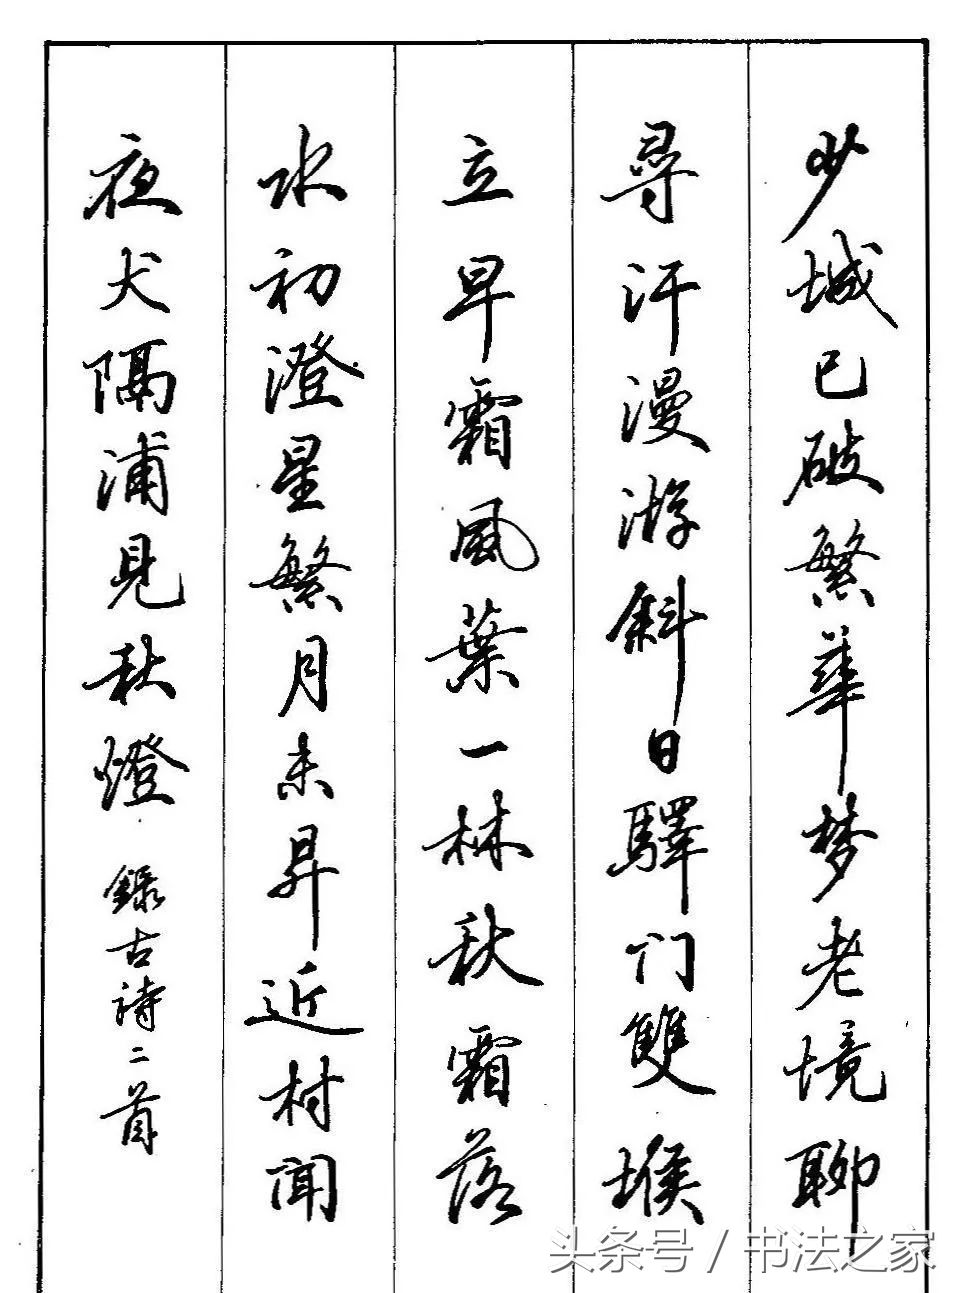 少城已破繁華梦老境聊
尋汗漫游斜日驛门雙堠
立早霜風葉一林秋霜落
水初澄星繁月未昇近村聞
夜犬隔浦見秋燈 錄古詩二首
头条号 / 书法之家